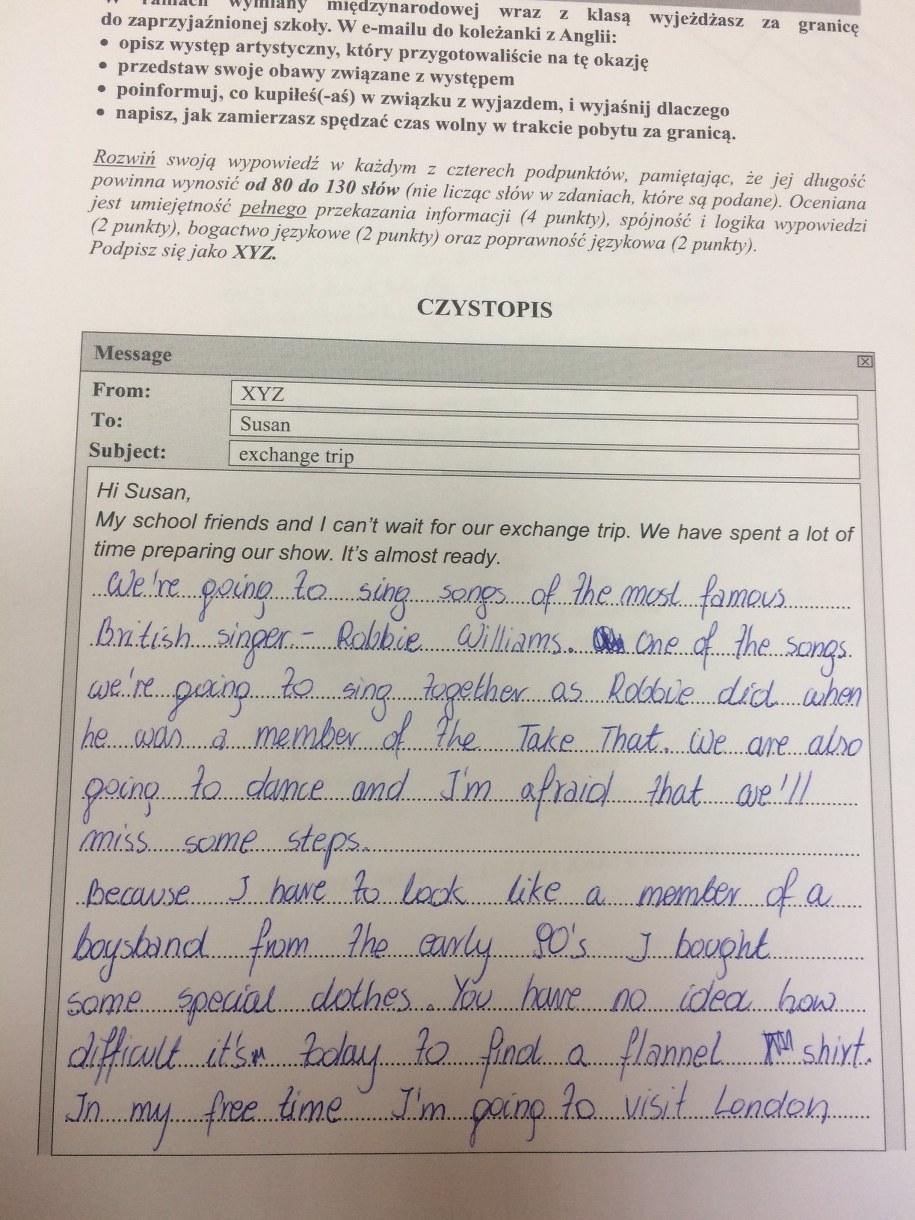 W ramach wymiany międzynarodowej wraz z klasą wyjeżdżasz za granicę
do zaprzyjaźnionej szkoły. W e-mailu do koleżanki z Anglii:
• opisz występ artystyczny, który przygotowaliście na tę okazję
• przedstaw swoje obawy związane z występem
• poinformuj, co kupiłeś(-aś) w związku z wyjazdem, i wyjaśnij dlaczego
• napisz, jak zamierzasz spędzać czas wolny w trakcie pobytu za granicą.
Rozwiń swoją wypowiedź w każdym z czterech podpunktów, pamiętając, że jej długość
powinna wynosić od 80 do 130 słów (nie licząc słów w zdaniach, które są podane). Oceniana
jest umiejętność pełnego przekazania informacji (4 punkty), spójność i logika wypowiedzi
(2 punkty), bogactwo językowe (2 punkty) oraz poprawność językowa (2 punkty).
Podpisz się jako XYZ.
CZYSTOPIS
Message
From: XYZ
To: Susan
Subject: exchange trip
Hi Susan,
My school friends and I can't wait for our exchange trip. We have spent a lot of
time preparing our show. It's almost ready.
We're going to sing songs of the most famous
British singer - Robbie Williams. One of the songs
we're going to sing together as Robbie did when
he was a member of the Take That. We are also
going to dance and I'm afraid that we'll
miss some steps.
Because I have to look like a member of a
boysband from the early 90's I bought
some special clothes. You have no idea how
difficult it's today to find a flannel shirt.
In my free time I'm going to visit London